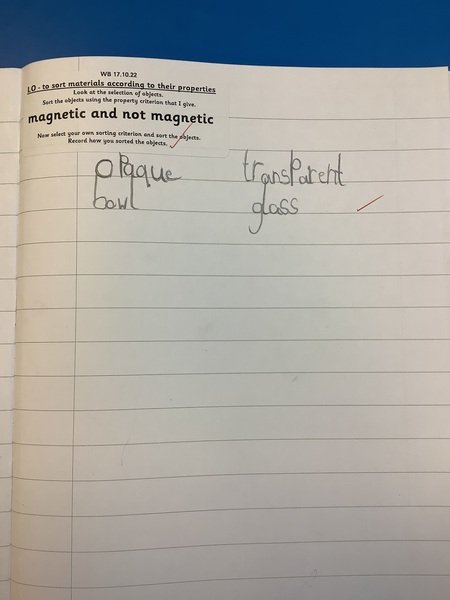 WB 17.10.22
LO - to sort materials according to their properties
Look at the selection of objects.
Sort the objects using the property criterion that I give.
magnetic and not magnetic
Now select your own sorting criterion and sort the objects.
Record how you sorted the objects.
opaque transparent
bowl glass